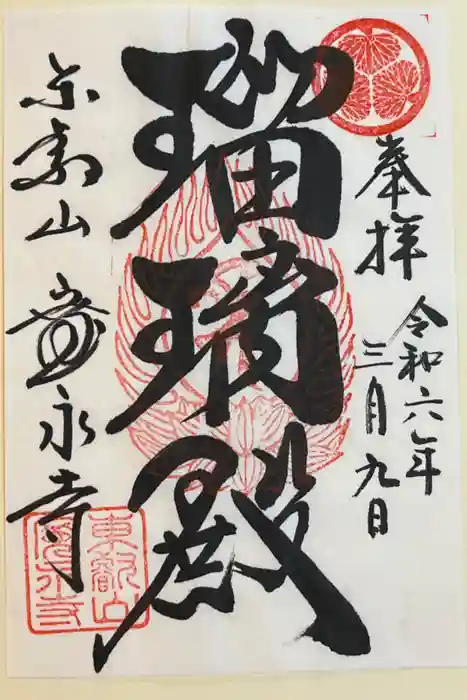 奉拝
令和六年
三月九日
瑠璃殿
东叡山 寛永寺
東叡山
寛永寺